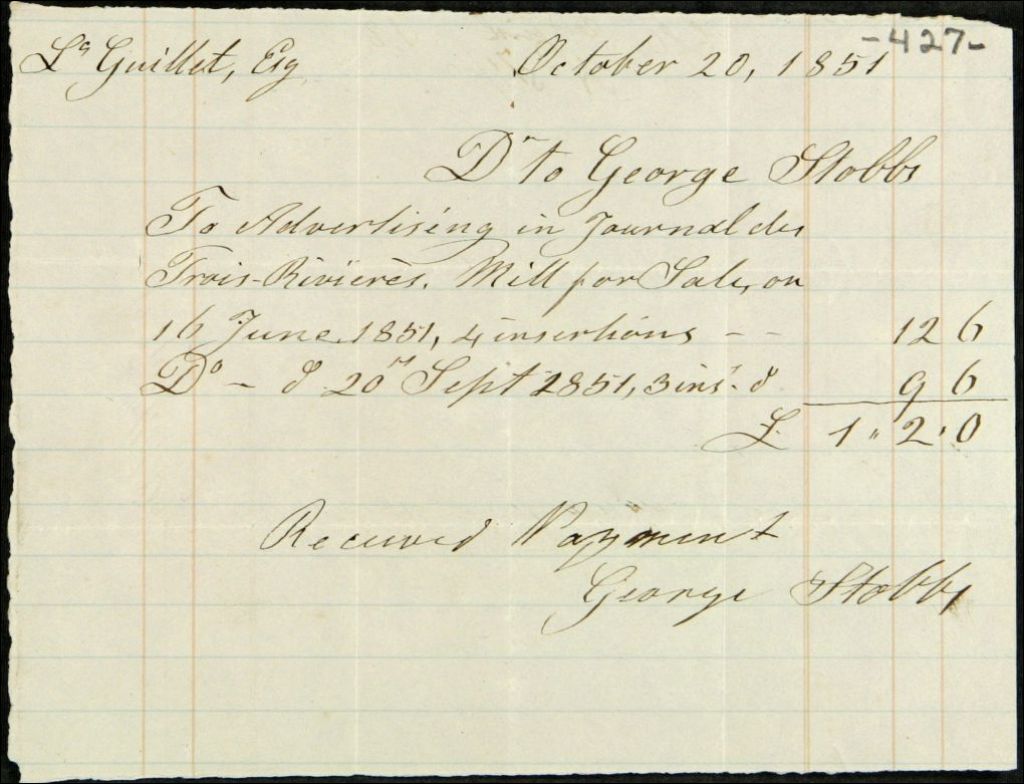 -427-
Ls Guillet, Esq October 20, 1851
Dr to George Stobbs
To Advertising in Journal des
Trois-Rivières. Mill for Sale, on
16 June 1851, 4 insertions - - 12 6
Do - d 20 Sept 1851, 3 ins. d 9 6
£ 1 " 2 " 0
Received Payment
George Stobbs